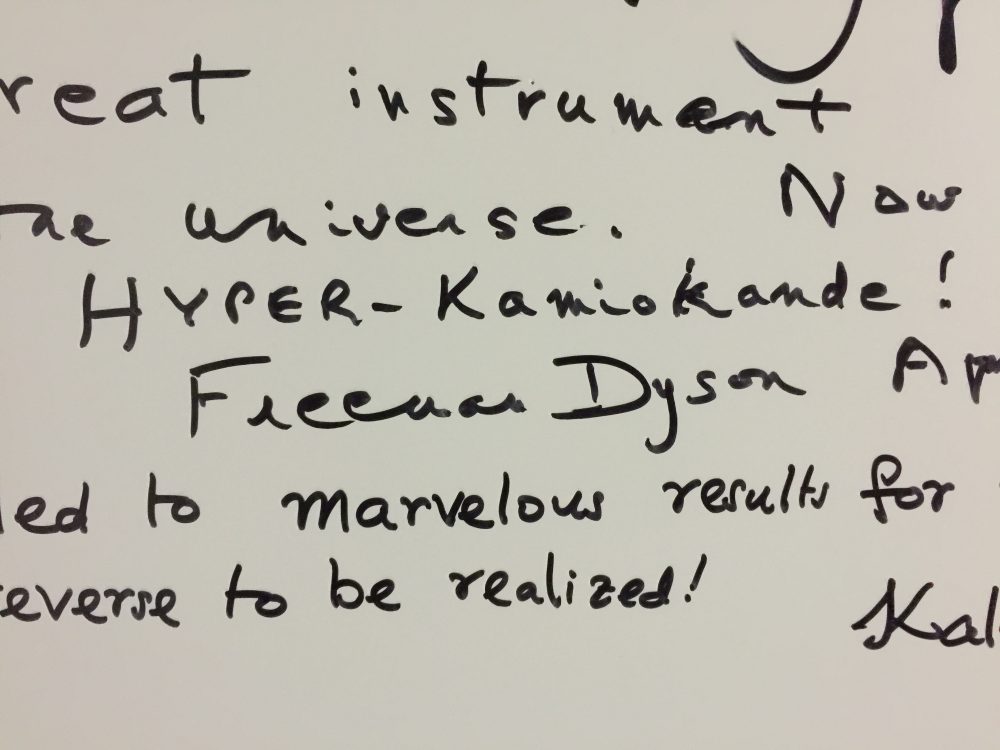 reat instrument
the universe. Now
HYPER-Kamiokande!
Freeman Dyson Ap
led to marvelous results for
reverse to be realized!
Kal